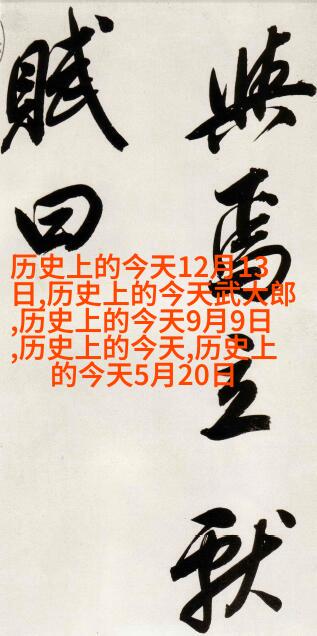 焉立
賦曰
历史上的今天12月13
日,历史上的今天武大郎
,历史上的今天9月9日
,历史上的今天,历史上
的今天5月20日